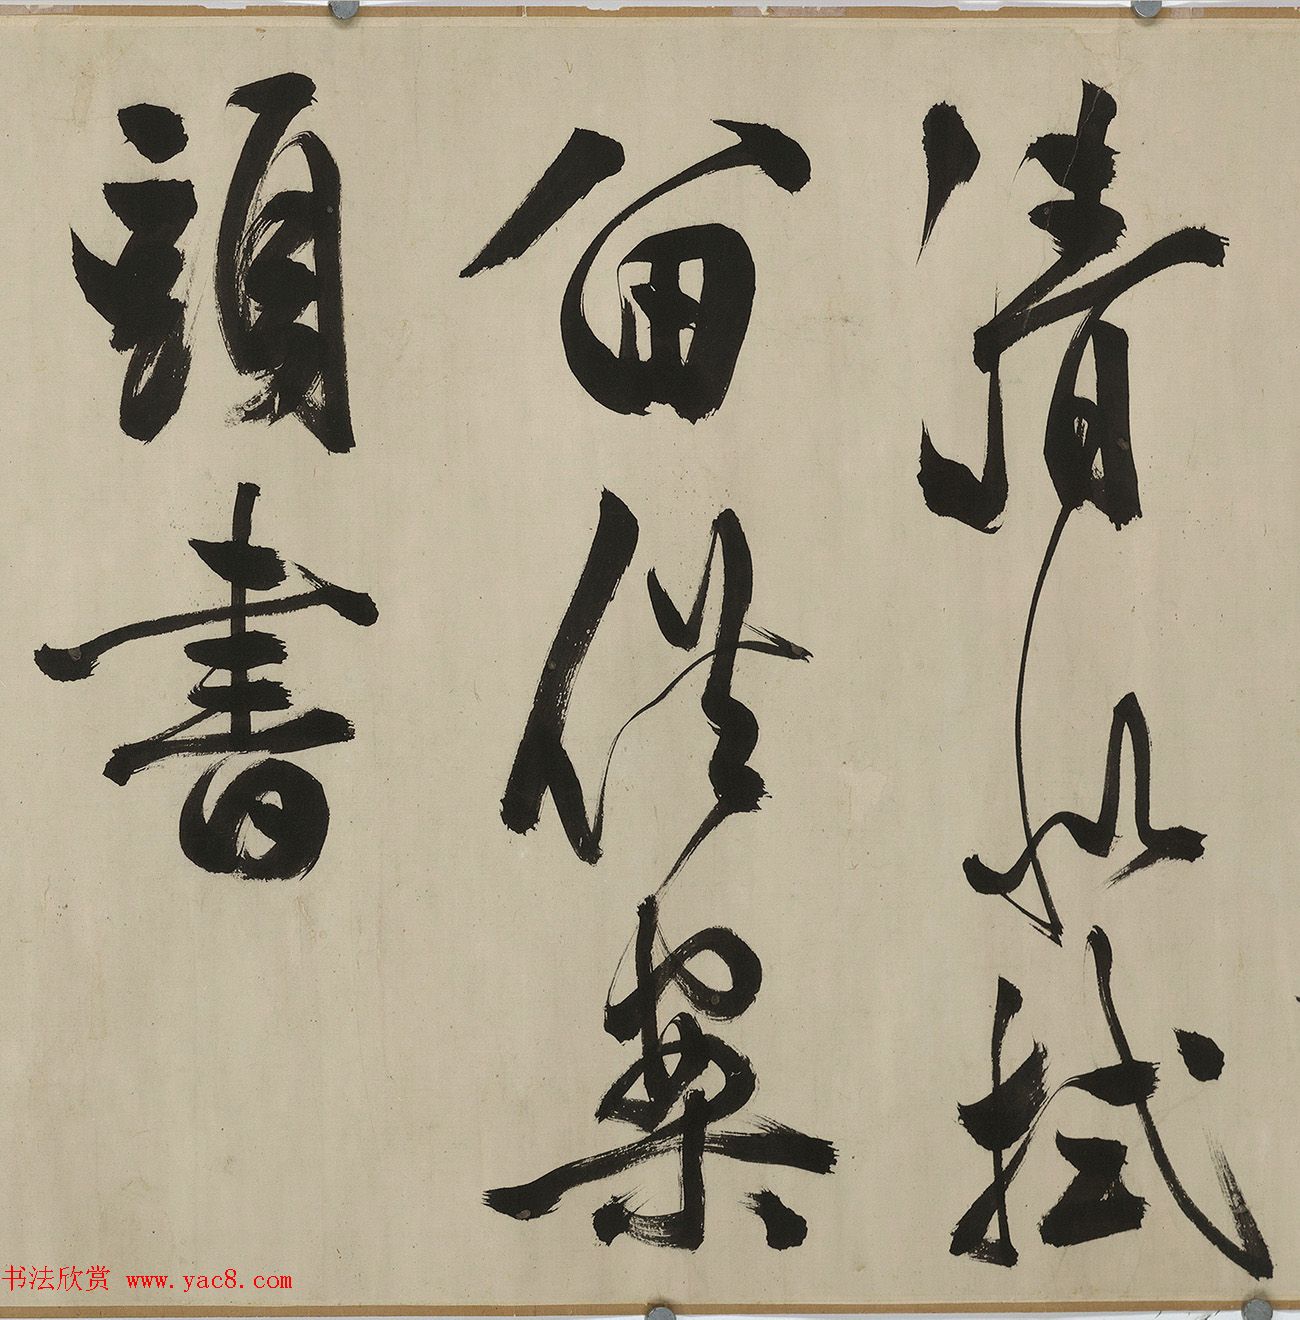 清以拭
留供案
頭書
书法欣赏 www.yac8.com